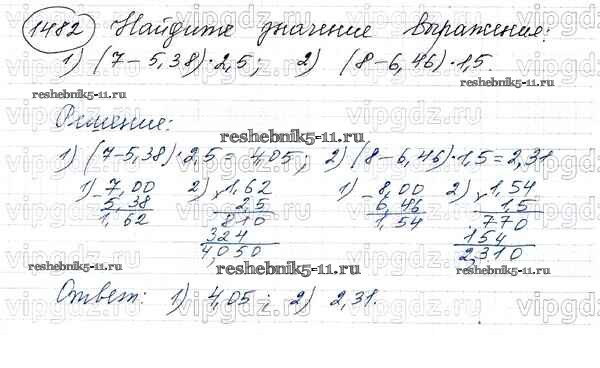 1482 Найдите значение выражение:
1) (7 – 5,38) · 2,5; 2) (8 – 6,46) · 1,5.
reshebnik5-11.ru reshebnik5-11.ru
Решение:
reshebnik5-11.ru
1) (7-5,38)·2,5 = 4,05; 2) (8-6,46)·1,5 = 2,31
1) – 7,00 2) × 1,62 1) – 8,00 2) × 1,54
5,38 2,5 6,46 1,5
1,62 810 1,54 770
324 154
4,050 2,310
reshebnik5-11.ru reshebnik5-11.ru reshebnik5-11.ru
Ответ: 1) 4,05; 2) 2,31.
vipgdz.ru